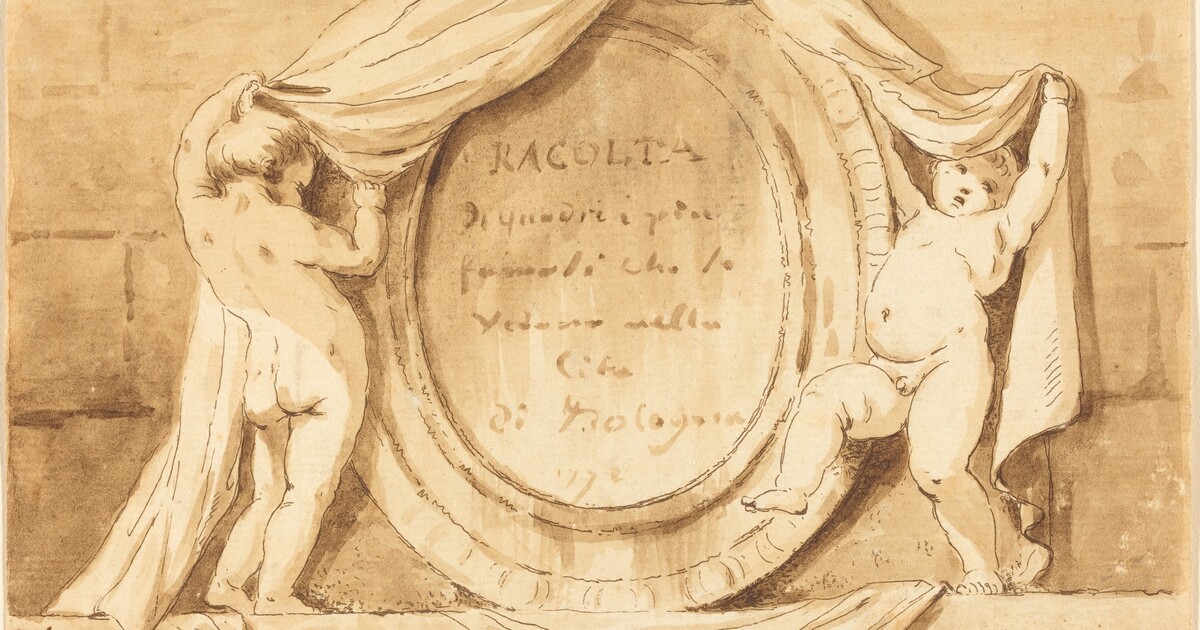 RACOLTA
di quadri i più
famosi che se
Vedano nella
Cita
di Bologna
177